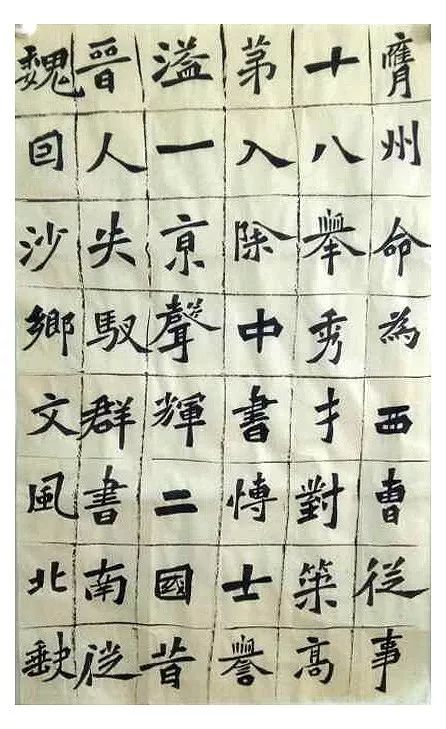 膺州命為西曹從事
十八舉秀才對策高
第入除中書博士譽
溢一京聲輝二國昔
晉人失馭群書南徙
魏因沙鄉文風北缺